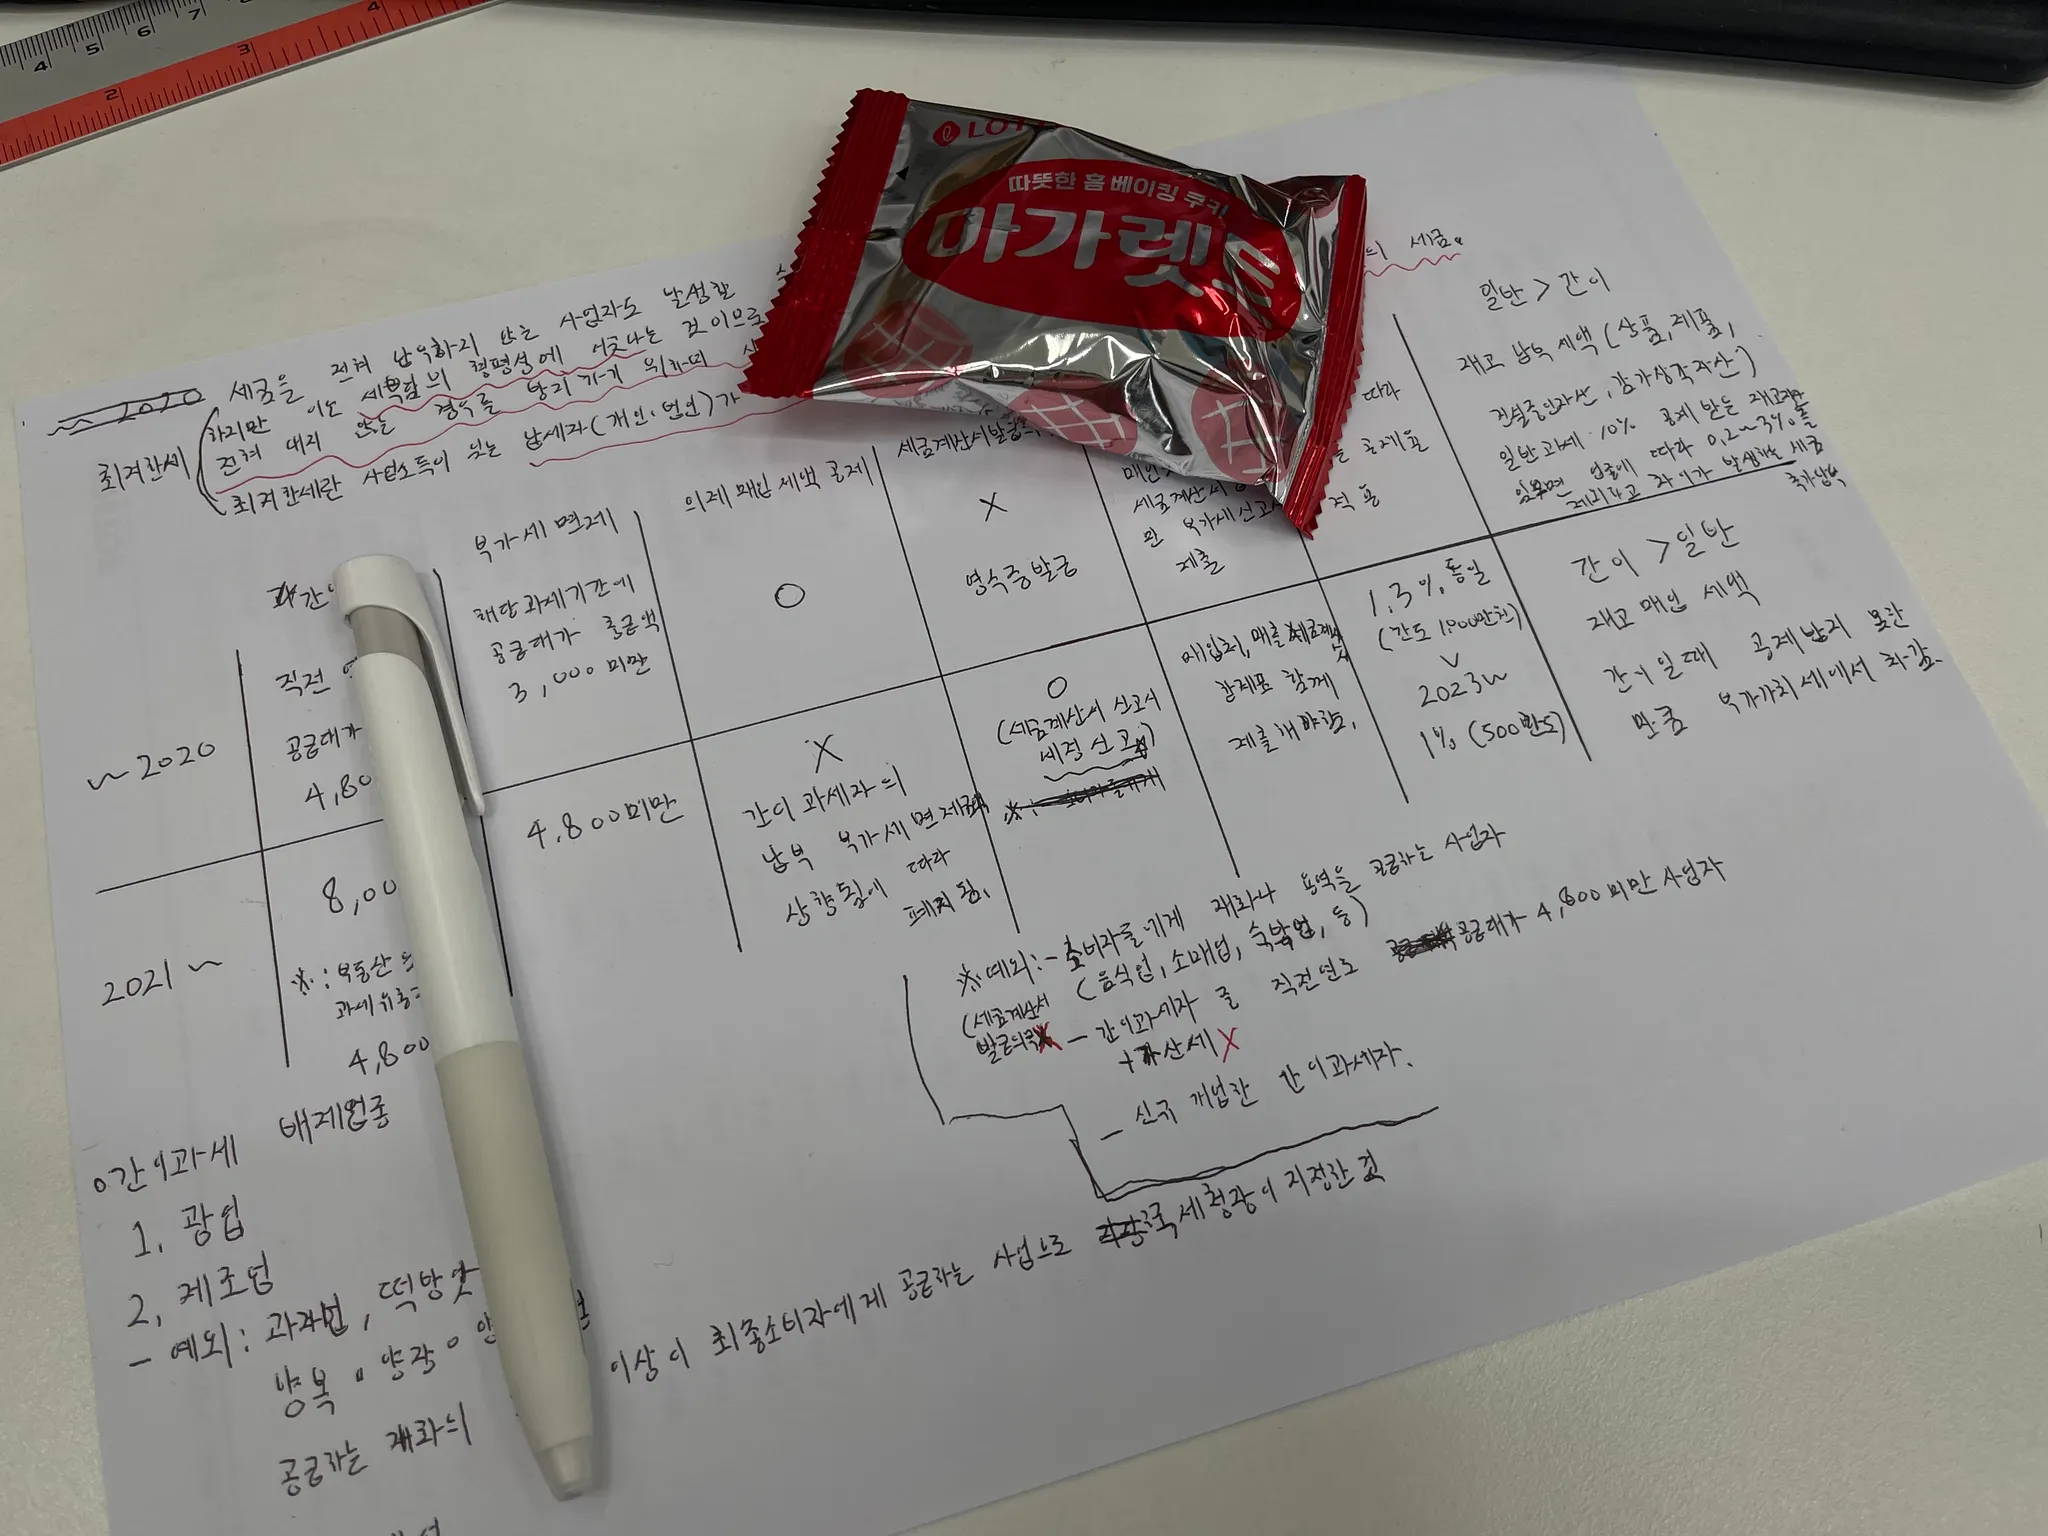 4 5 6 7
2 3 4
LOTTE
따뜻한 홈 베이킹 쿠키
마가렛트
~ 2020
세금을 전혀 납부하지 않는 사업자도 발생할
하지만 이는 세부담의 형평성에 어긋나는 것이므로
전혀 내지 않는 경우를 방지하기 위하여
의 세금.
최저한세
최저한세란 사업소득이 있는 납세자(개인, 법인)가
부가세 면제
의제 매입 세액 공제
세금계산서발급
일반 > 간이
~ 2020
직전
공급대가
4,80
해당과세기간에
공급대가 총금액
3,000미만
O
X
영수증발급
매입
세금계산서
만 부가세신고시
제출
따라
공제율
적용
재고 납부 세액 (상품, 제품,
건설중인자산, 감가상각자산)
일반과세 10% 공제 받는 재고
업종에 따라 0.2~3%를
제외하고 차이가 발생하는 세금
추가납부
2021 ~
8,00
※: 부동산
과세유흥
4,800
4,800미만
X
간이 과세자의
납부 부가세 면제
상향됨에 따라
폐지됨.
O
(세금계산서 신고서
세정 신고)
매입처, 매출
합계표 함께
제출해야함.
1.3% 통일
(간도 1,000만원)
2023~
1% (500한도)
간이 > 일반
재고 매입 세액
간이일때 공제받지 못한
만큼 부가가치세에서 차감.
※예외: - 소비자들에게 재화나 용역을 공급하는 사업자
(음식업, 소매업, 숙박업, 등)
(세금계산서
발급의무X
- 간이과세자 중 직전년도 공급대가 4,800미만 사업자
+가산세 X
- 신규 개업한 간이과세자.
○간이과세 배제업종
1. 광업
2. 제조업
- 예외: 과자번, 떡방앗
양복·양장·양
공급하는 재화의
이상이 최종소비자에게 공급하는 사업으로 국세청장이 지정한 것